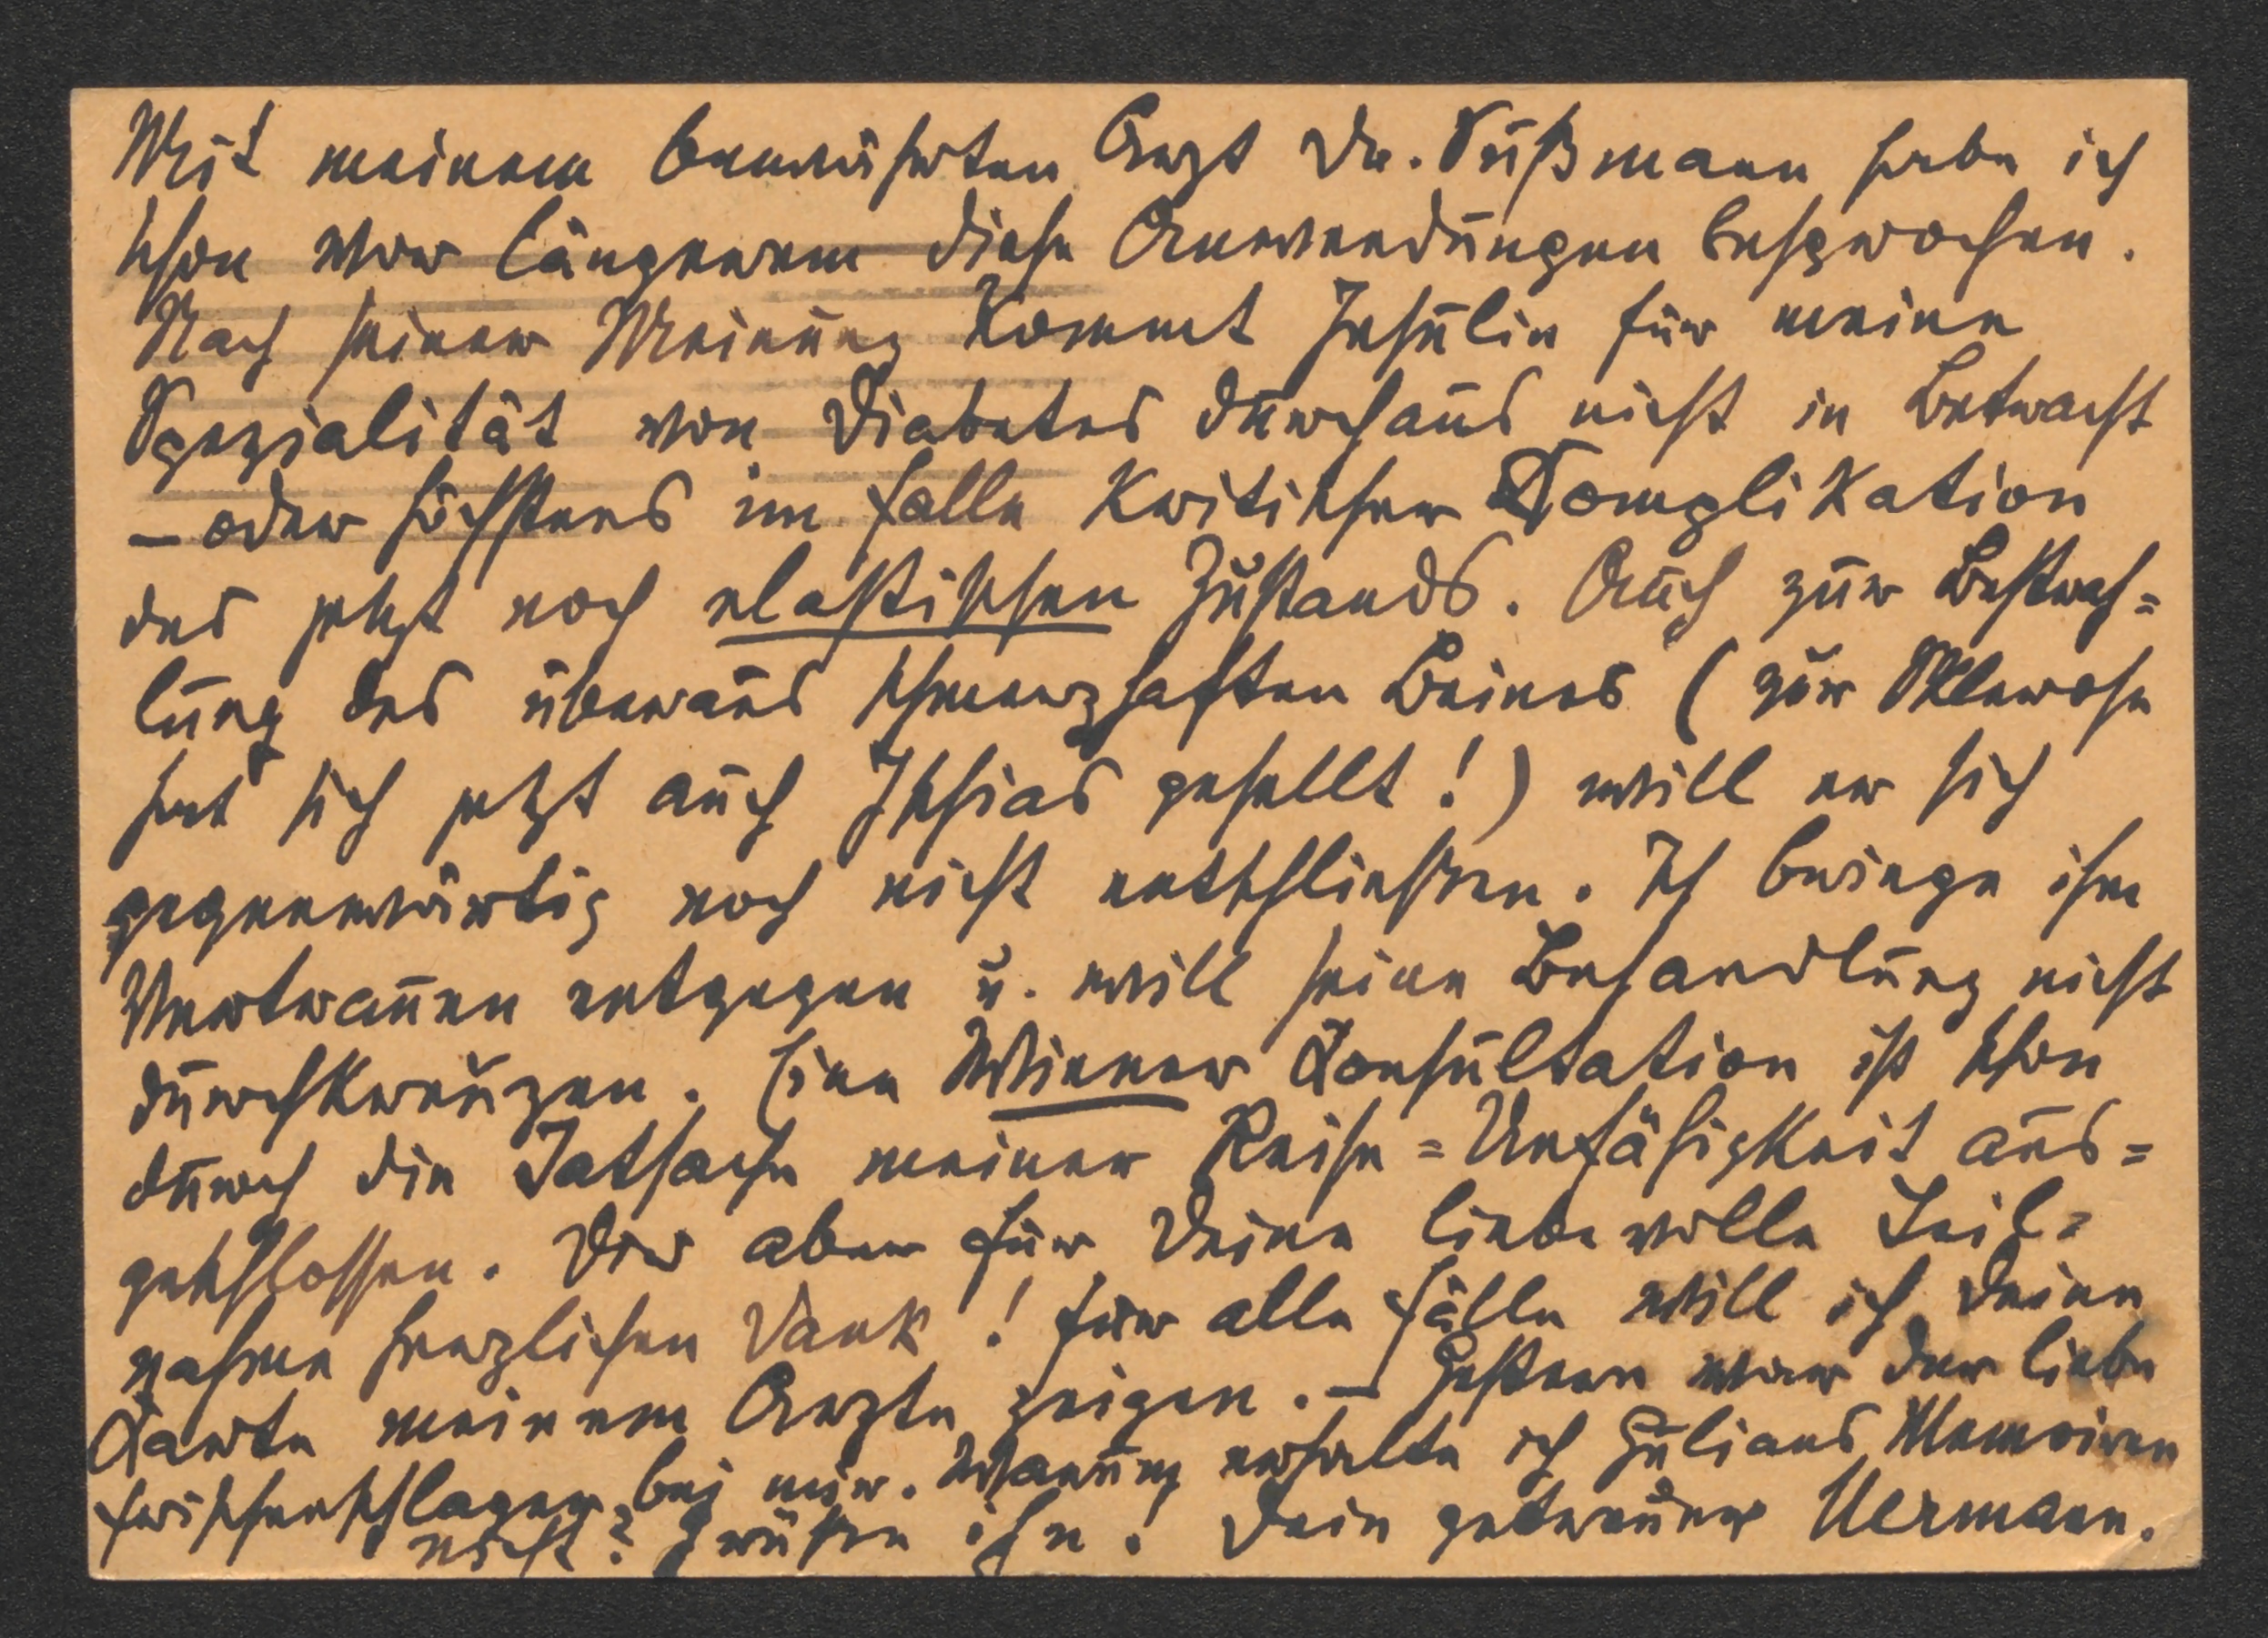 Mit meinem bewährten Arzt Dr. Süßmann habe ich
schon vor längerem diese Anwendungen besprochen.
Nach seiner Meinung kommt Insulin für meine
Spezialität von Diabetes durchaus nicht in Betracht
– oder höchstens im Falle kritischer Komplikation
des jetzt noch elastischen Zustands. Auch zur Bestrah=
lung des überaus schmerzhaften Beines (zur Sklerose
hat sich jetzt auch Ischias gesellt!) will er sich
gegenwärtig noch nicht entschließen. Ich bringe ihm
Vertrauen entgegen u. will seine Behandlung nicht
durchkreuzen. Eine Wiener Konsultation ist schon
durch die Tatsache meiner Reise=Unfähigkeit aus=
geschlossen. Dir aber für Deine liebevolle Teil=
nahme herzlichen Dank! Für alle Fälle will ich Deine
Karte meinem Arzte zeigen. – Gestern war der liebe
Frischenschlager bei mir. Warum erhalte ich Julians Memoiren
nicht? Grüße ihn! Dein getreuer Hermann.